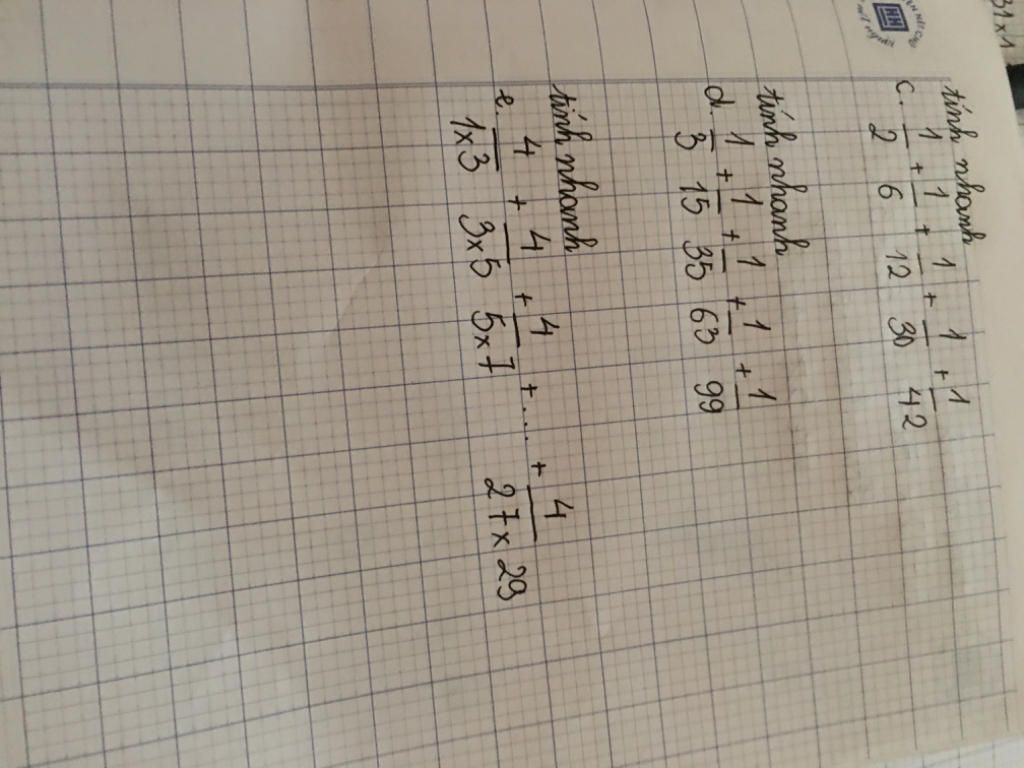 31x1
tính nhanh
c. 1/2 + 1/6 + 1/12 + 1/30 + 1/42
tính nhanh
d. 1/3 + 1/15 + 1/35 + 1/63 + 1/99
tính nhanh
e. 4/1x3 + 4/3x5 + 4/5x7 + ... + 4/27x29